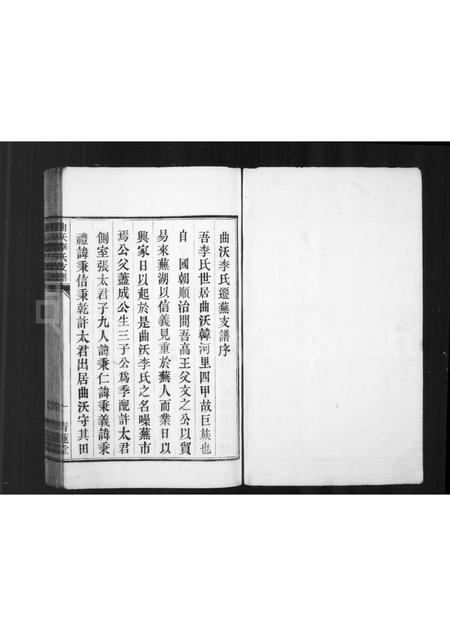 曲沃李氏遷蕪支譜序
吾李氏世居曲沃韓河里四甲故巨族也
自　國朝順治間吾高王父文之公以貿
易來蕪湖以信義見重於蕪人而業日以
興家日以起於是曲沃李氏之名噪蕪市
焉公父藎成公生三子公爲季配許太君
側室張太君子九人諱秉仁諱秉義諱秉
禮諱秉信秉乾許太君出居曲沃守其田
曲沃李氏支譜
一
青蓮堂